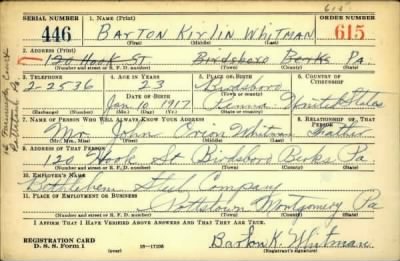 SERIAL NUMBER 1. NAME (Print) ORDER NUMBER
446 Barton Kirlin Whitman 615
(First) (Middle) (Last)
2. ADDRESS (Print)
120 Hook St. Birdsboro Berks Pa.
(Number and street or R. F. D. number) (Town) (County) (State)
3. TELEPHONE 4. AGE IN YEARS 5. PLACE OF BIRTH 6. COUNTRY OF CITIZENSHIP
2-2536 23 Birdsboro
DATE OF BIRTH (Town or county)
Jan 10 1917 Penna. United States
(Exchange) (Number) (Mo.) (Day) (Yr.) (State or country)
7. NAME OF PERSON WHO WILL ALWAYS KNOW YOUR ADDRESS 8. RELATIONSHIP OF THAT PERSON
Mr. John Whitman Father
(Mr., Mrs., Miss) (First) (Middle) (Last)
9. ADDRESS OF THAT PERSON
120 Hook St Birdsboro Berks Pa
(Number and street or R. F. D. number) (Town) (County) (State)
10. EMPLOYER'S NAME
Bethlehem Steel Company
11. PLACE OF EMPLOYMENT OR BUSINESS
Pottstown Montgomery Pa
(Number and street or R. F. D. number) (Town) (County) (State)
I AFFIRM THAT I HAVE VERIFIED ABOVE ANSWERS AND THAT THEY ARE TRUE.
REGISTRATION CARD
D. S. S. Form 1 Barton K. Whitman
(Registrant's signature)